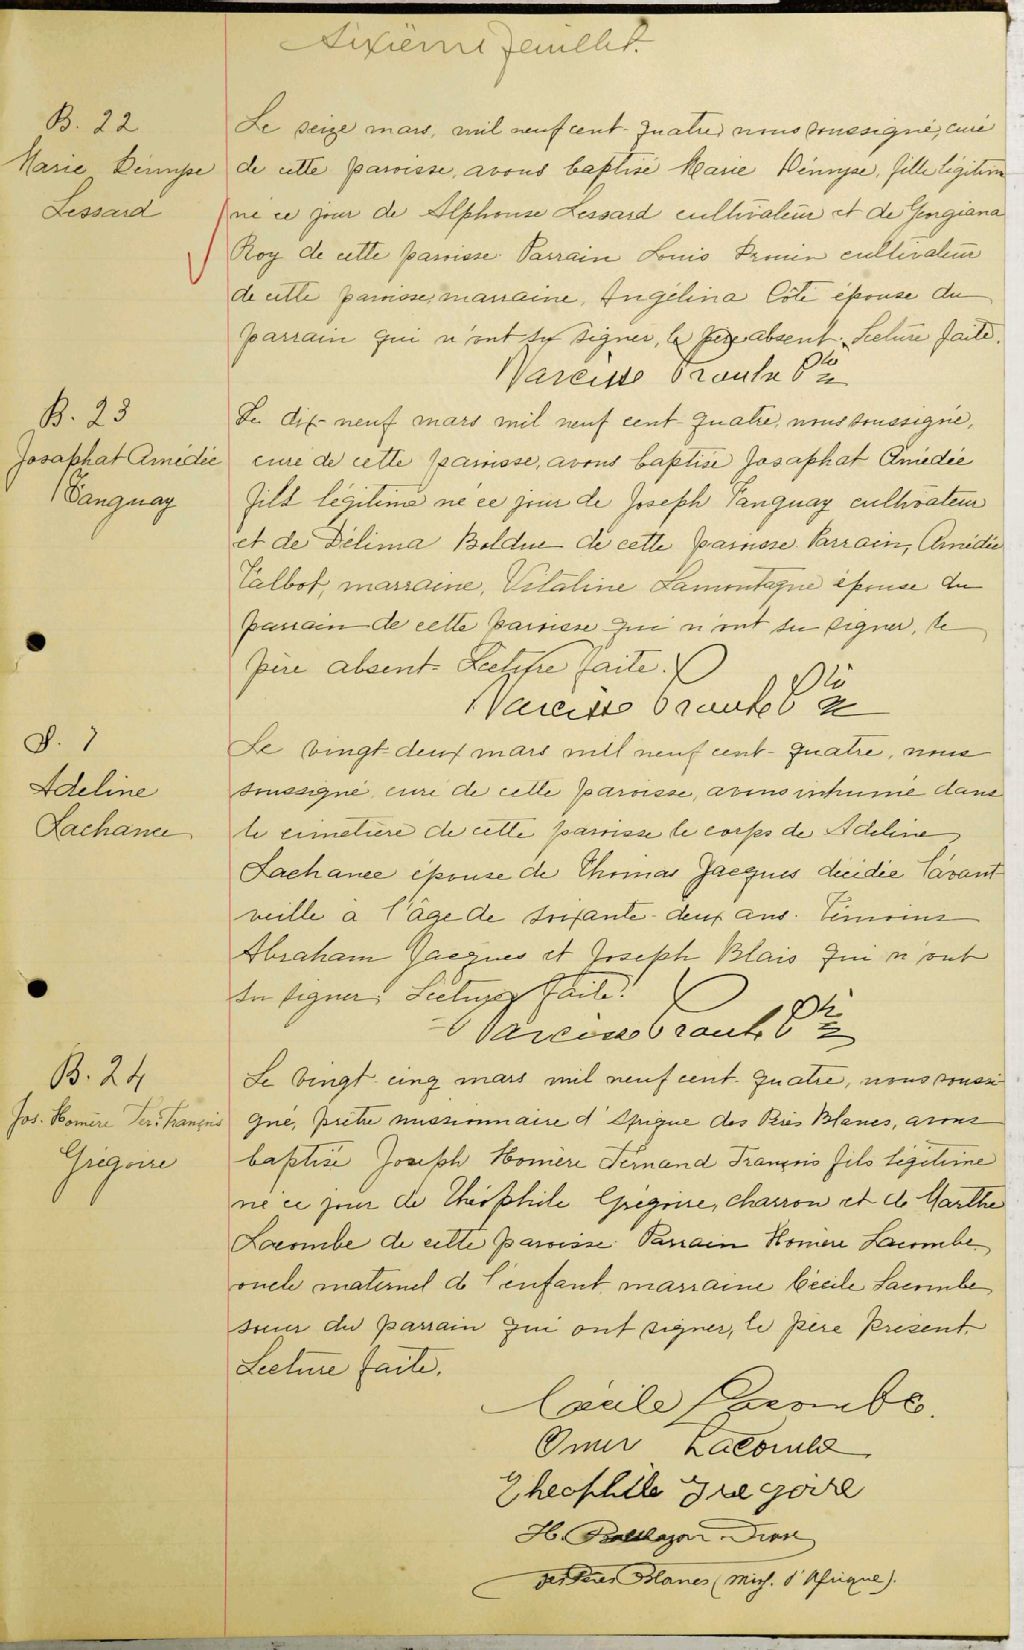 Sixième feuillet.
B. 22
Marie Dennyse
Lessard
Le seize mars, mil neuf cent quatre, nous soussigné, curé
de cette paroisse, avons baptisé Marie Dennyse, fille légitime
né ce jour de Alphonse Lessard cultivateur et de Georgiana
Roy de cette paroisse. Parrain Louis Drouin cultivateur
de cette paroisse, marraine, Angélina Côté épouse du
parrain qui n'ont su signer, le père absent. Lecture faite.
Narcisse Proulx Ptre
B. 23
Josaphat Amédée
Tanguay
Le dix-neuf mars mil neuf cent quatre, nous soussigné,
curé de cette paroisse, avons baptisé Josaphat Amédée
fils légitime né ce jour de Joseph Tanguay cultivateur
et de Délima Bolduc de cette paroisse. Parrain, Amédée
Talbot, marraine, Vitaline Lamontagne épouse du
parrain de cette paroisse qui n'ont su signer, le
père absent. Lecture faite.
Narcisse Proulx Ptre
S. 7
Adeline
Lachance
Le vingt-deux mars mil neuf cent-quatre, nous
soussigné, curé de cette paroisse, avons inhumé dans
le cimetière de cette paroisse le corps de Adeline
Lachance épouse de Thomas Jacques décédée l'avant
veille à l'âge de soixante-deux ans. Témoins
Abraham Jacques et Joseph Blais qui n'ont
su signer. Lecture faite.
Narcisse Proulx Ptre
B. 24
Jos. Homère Fer. François
Grégoire
Le vingt-cinq mars mil neuf cent-quatre, nous soussi
gné, prêtre missionnaire d'Afrique des Pères Blancs, avons
baptisé Joseph Homère Fernand François fils légitime
né ce jour de Théophile Grégoire, charron et de Marthe
Lacombe de cette paroisse. Parrain Homère Lacombe
oncle maternel de l'enfant, marraine Cécile Lacombe
soeur du parrain qui ont signer, le père présent.
Lecture faite.
Cécile Lacombe.
Omer Lacombe
Theophile Gregoire
H.
des Pères Blancs (miss. d'Afrique).